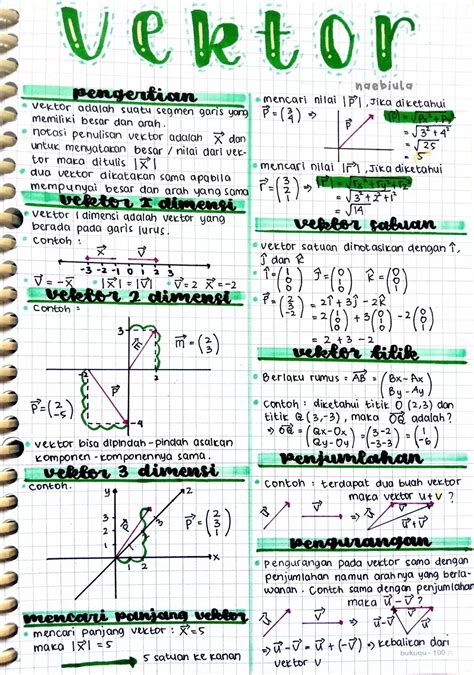 vektor
naebiula
pengertian
• vektor adalah suatu segmen garis yang
memiliki besar dan arah.
• notasi penulisan vektor adalah X⃗ dan
untuk menyatakan besar / nilai dari vek-
tor maka ditulis |X⃗|
• dua vektor dikatakan sama apabila
mempunyai besar dan arah yang sama
vektor 1 dimensi
• vektor 1 dimensi adalah vektor yang
berada pada garis lurus.
• contoh :
X⃗ V⃗
-3 -2 -1 0 1 2 3
V⃗ = -X⃗ |X⃗| = |V⃗| V⃗=2 X⃗=-2
vektor 2 dimensi
• contoh :
3
m⃗ = (2 3)
2
P⃗
P⃗=(2 -5)
-4
• vektor bisa dipindah-pindah asalkan
komponen-komponennya sama.
vektor 3 dimensi
• contoh.
y
z
3
2
1
3
2
1
P⃗ = (2 3 1)
1 2
x
mencari panjang vektor
• mencari panjang vektor : X⃗=5
maka |X⃗| = 5
5 satuan ke kanan
mencari nilai |P⃗|, jika diketahui
P⃗ = (3 4) ⇒ |P⃗| = √Px²+Py²
= √3²+4²
= √25
5
mencari nilai |P⃗|, jika diketahui
P⃗=(3 2 1) ⇒ |P⃗| = √Px²+Py²+Pz²
= √3²+2²+1²
= √14
vektor satuan
• vektor satuan dinotasikan dengan î,
ĵ dan k̂
• î=(1 0 0) ĵ=(0 1 0) k̂=(0 0 1)
• P⃗=(2 3 -2) = 2î+3ĵ-2k̂
= 2(1 0 0) + 3(0 1 0) - 2(0 0 1)
= 2 + 3 - 2
vektor titik
• Berlaku rumus = AB⃗ = (Bx-Ax By-Ay)
• contoh : diketahui titik O (2,3) dan
titik Q (3,-3), maka OQ⃗ adalah?
⇒ OQ⃗ = (Qx-Ox Qy-Oy) = (3-2 -3-3) = (1 -6)
penjumlahan
• contoh : terdapat dua buah vektor
maka vektor u+v ?
u⃗+v⃗
pengurangan
• pengurangan pada vektor sama dengan
penjumlahan namun arahnya yang berla-
wanan. contoh sama dengan penjumlahan
maka u⃗-v⃗ ?
⇒ u⃗-v⃗
⇒ u⃗-v⃗ = u⃗+(-v⃗) ⇒ kebalikan dari
vektor v
bukuqu - 100